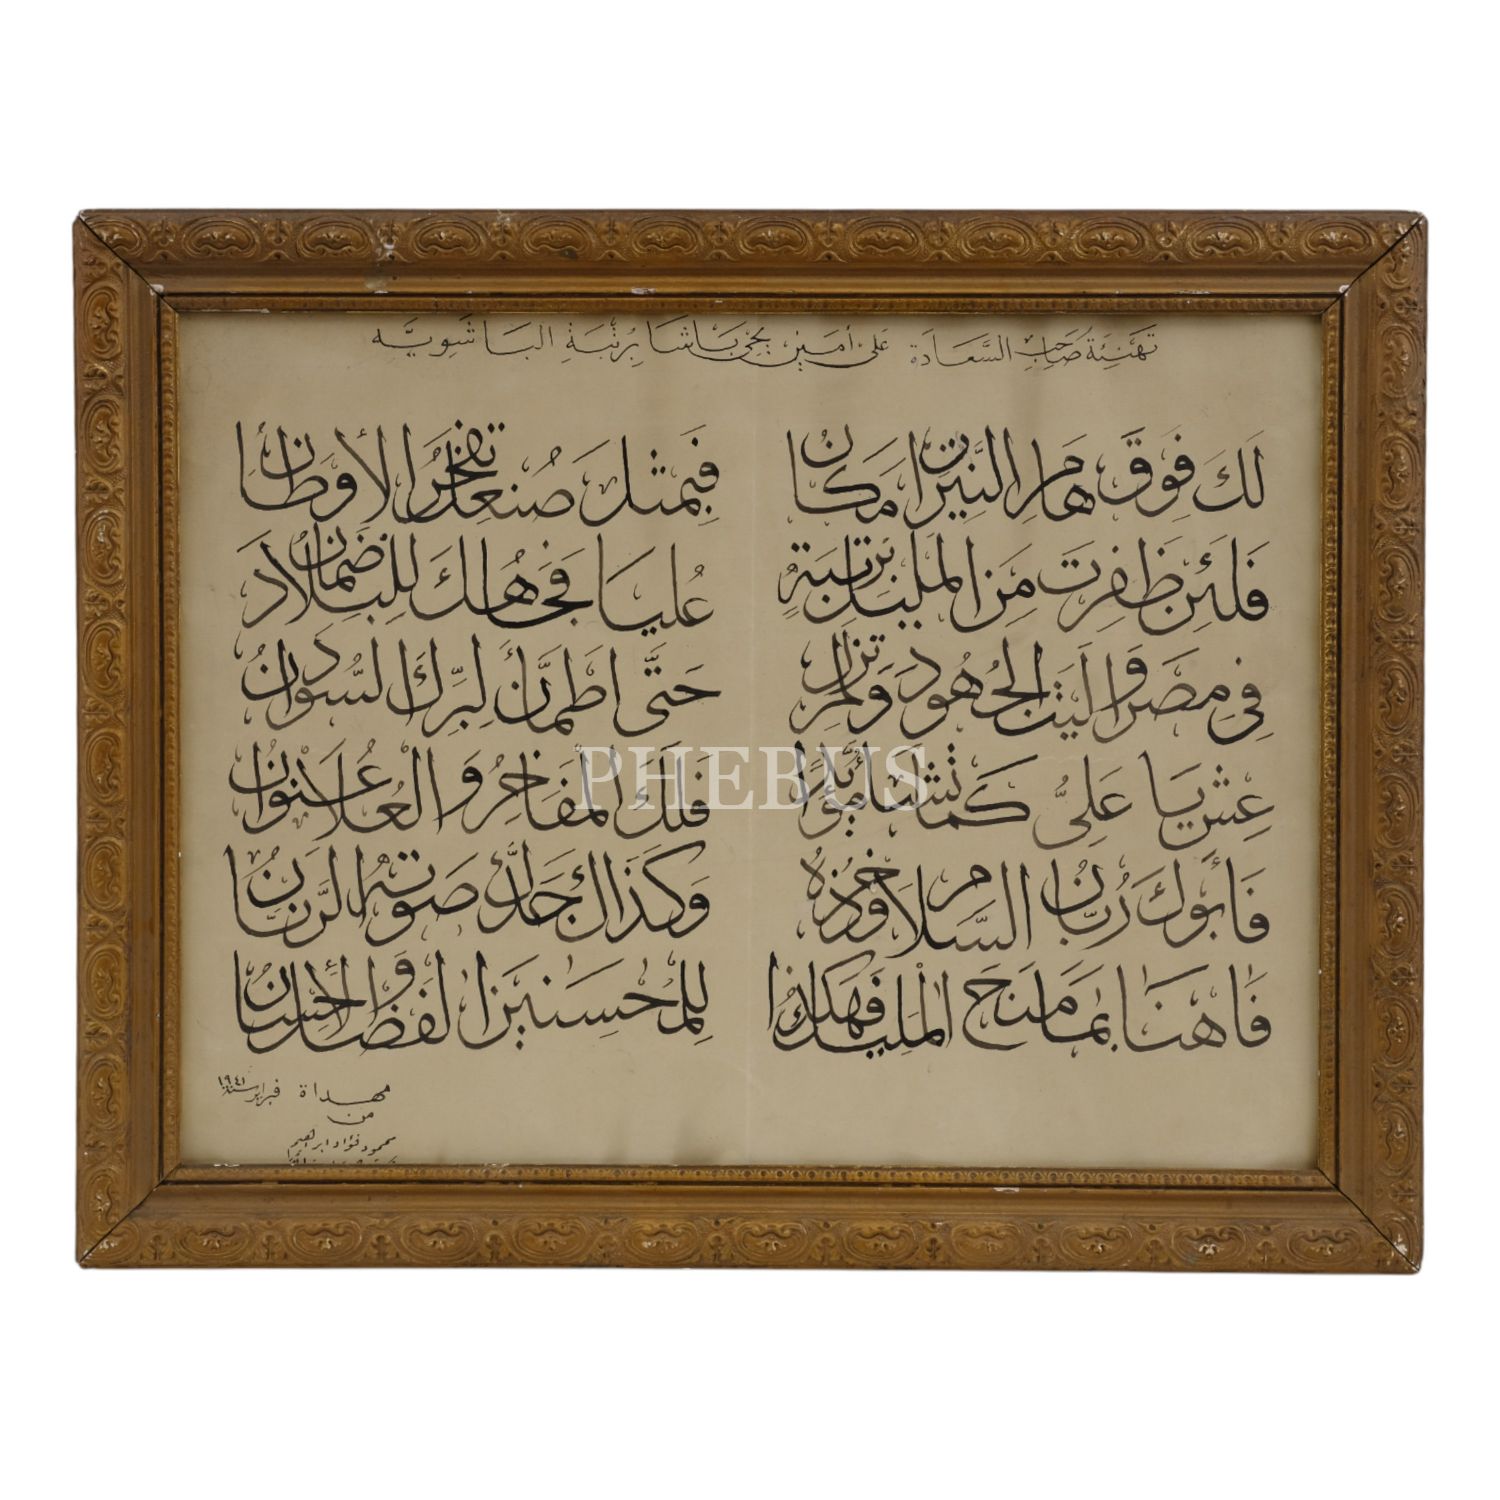 تهنئة صاحب السعادة على أمين يحيى باشا برتبة الباشوية
لَكَ فَوقَ هَامِ النَّيِّرَاتِ مَكَانُ فَبِمِثْلِ صُنعِكَ تَفْخَرُ الأَوطَانُ
فَلَئِن ظَفِرتَ مِنَ المليكِ برتبةٍ عُليَا فَجَاهُكَ للبلادِ ضَمانُ
فِي مِصرَ وَاليتَ الجُهُودَ وَلَم تزل حَتَّى اطمَأَنَّ لبِرِّكَ السُّودَانُ
عِش يَا عَلِيُّ كَمَا تشَاءُ مُؤيَّداً فَلَكَ المفَاخِرُ وَالْعُلَا عُنوَانُ
فَأَبُوكَ رُبَّانُ السَّلَامِ وَذُخْرُهُ وَكَذَاكَ جَلَّ صَوتُهُ الرَّنَّانُ
فَاهنَا بمَا مَنَحَ المَليكُ فَهكَذا للمُحسِنينَ الفَضلُ وَالإحسَانُ
مهداة فبراير سنة ١٩٤١
من
محمود فؤاد ابراهيم
PHEBUS